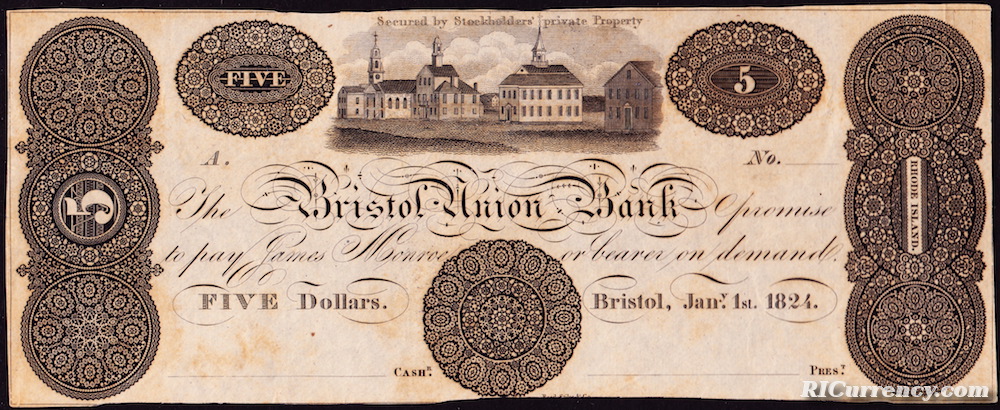 Secured by Stockholders' private Property
FIVE
5
A.
No.
5
RHODE ISLAND.
The Bristol Union Bank promise
to pay James Monroe or bearer on demand.
FIVE Dollars.
Bristol, Jany. 1st. 1824.
Cashr.
Prest.
RICurrency.com